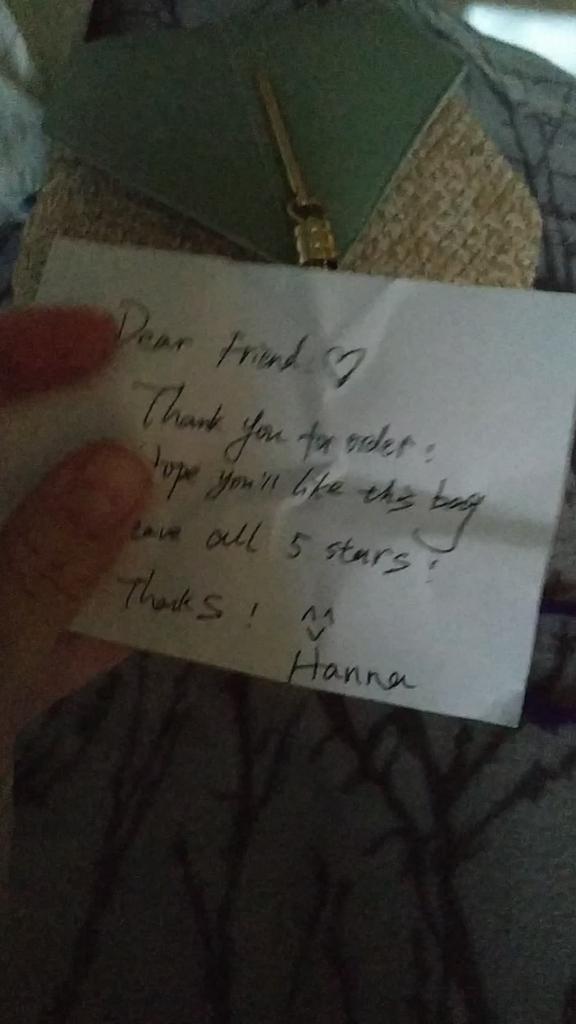 Dear friend ♡
Thank you for order!
hope you'll like this bag
leave all 5 stars!
Thanks! ^^
Hanna